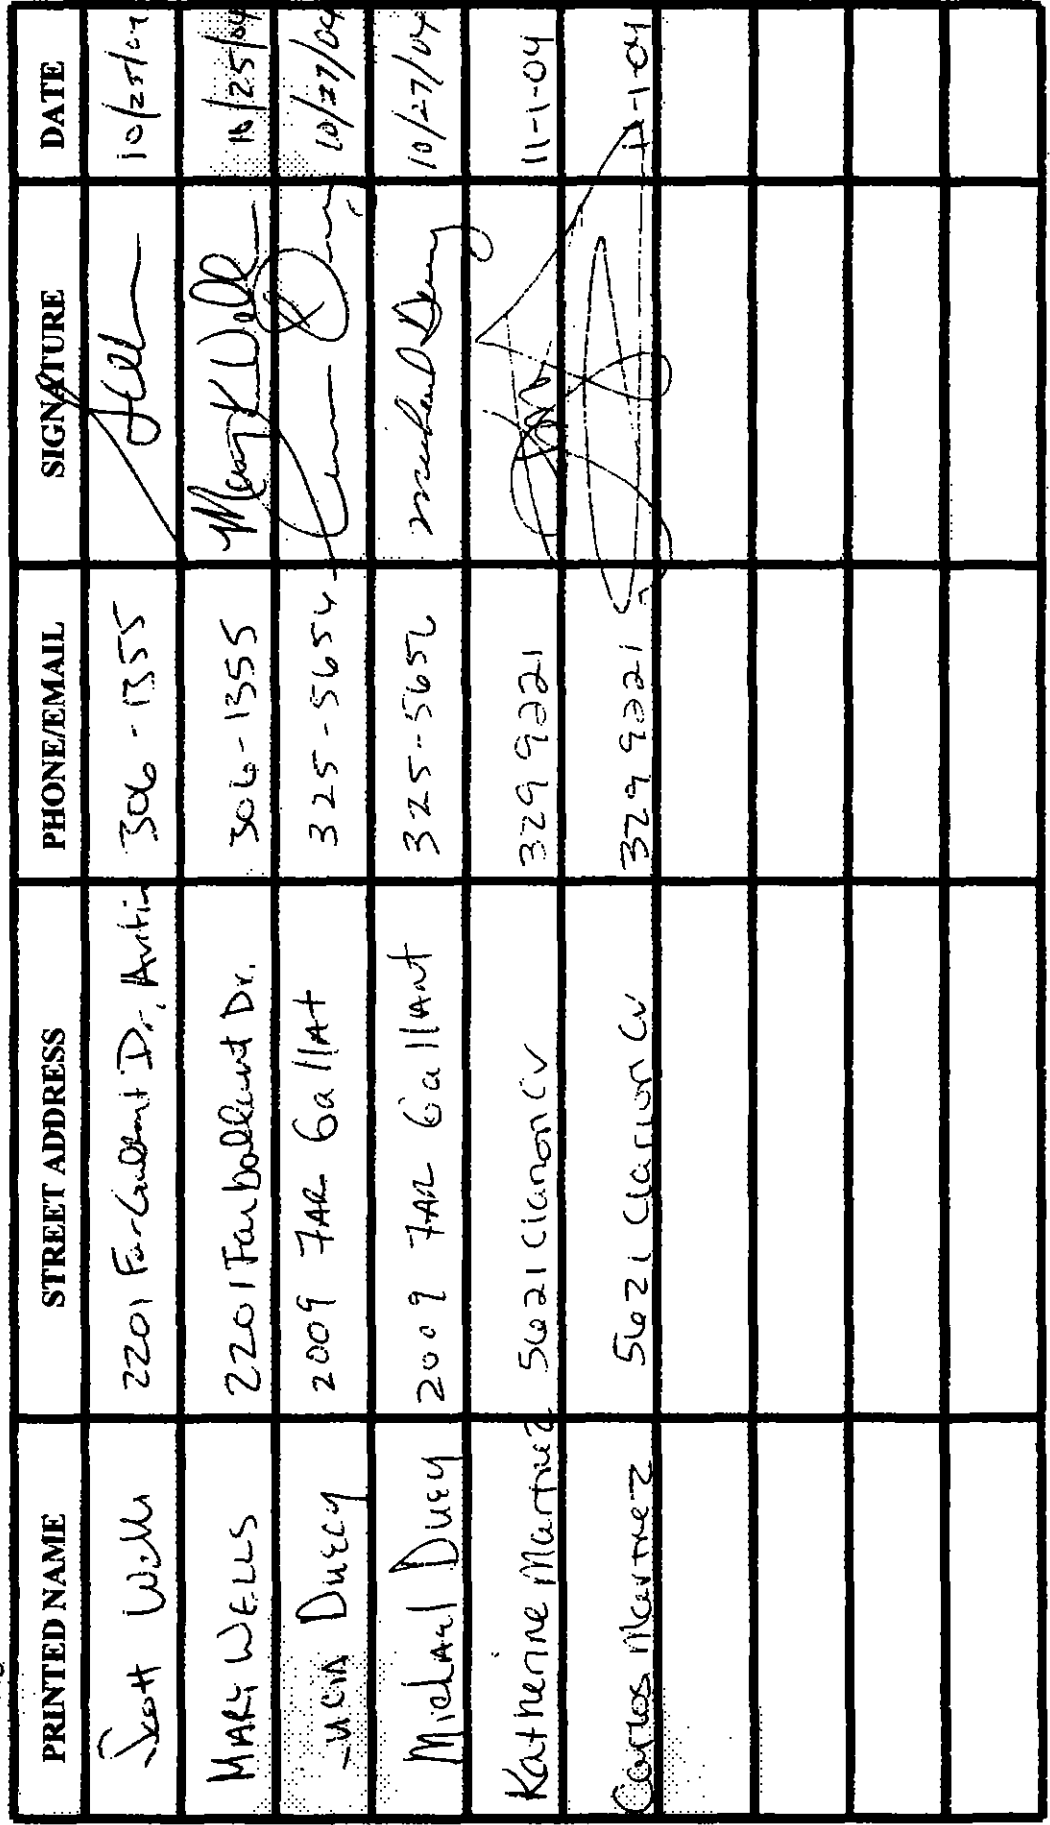 PRINTED NAME STREET ADDRESS PHONE/EMAIL SIGNATURE DATE
Scott Wells 2201 Far Gallant Dr., Austin 306-1355 10/25/04
MARY WELLS 2201 Far Gallant Dr. 306-1355 Mary K Wells 10/25/04
2009 FAR Gallant 325-5652 10/27/04
Michael Duecy 2009 FAR Gallant 325-5652 Michael Duecy 10/27/04
Katherine Martinez 5621 Clarion Cv 329 9221 11-1-04
Carlos Martinez 5621 Clarion Cv 329 9221 11-1-04